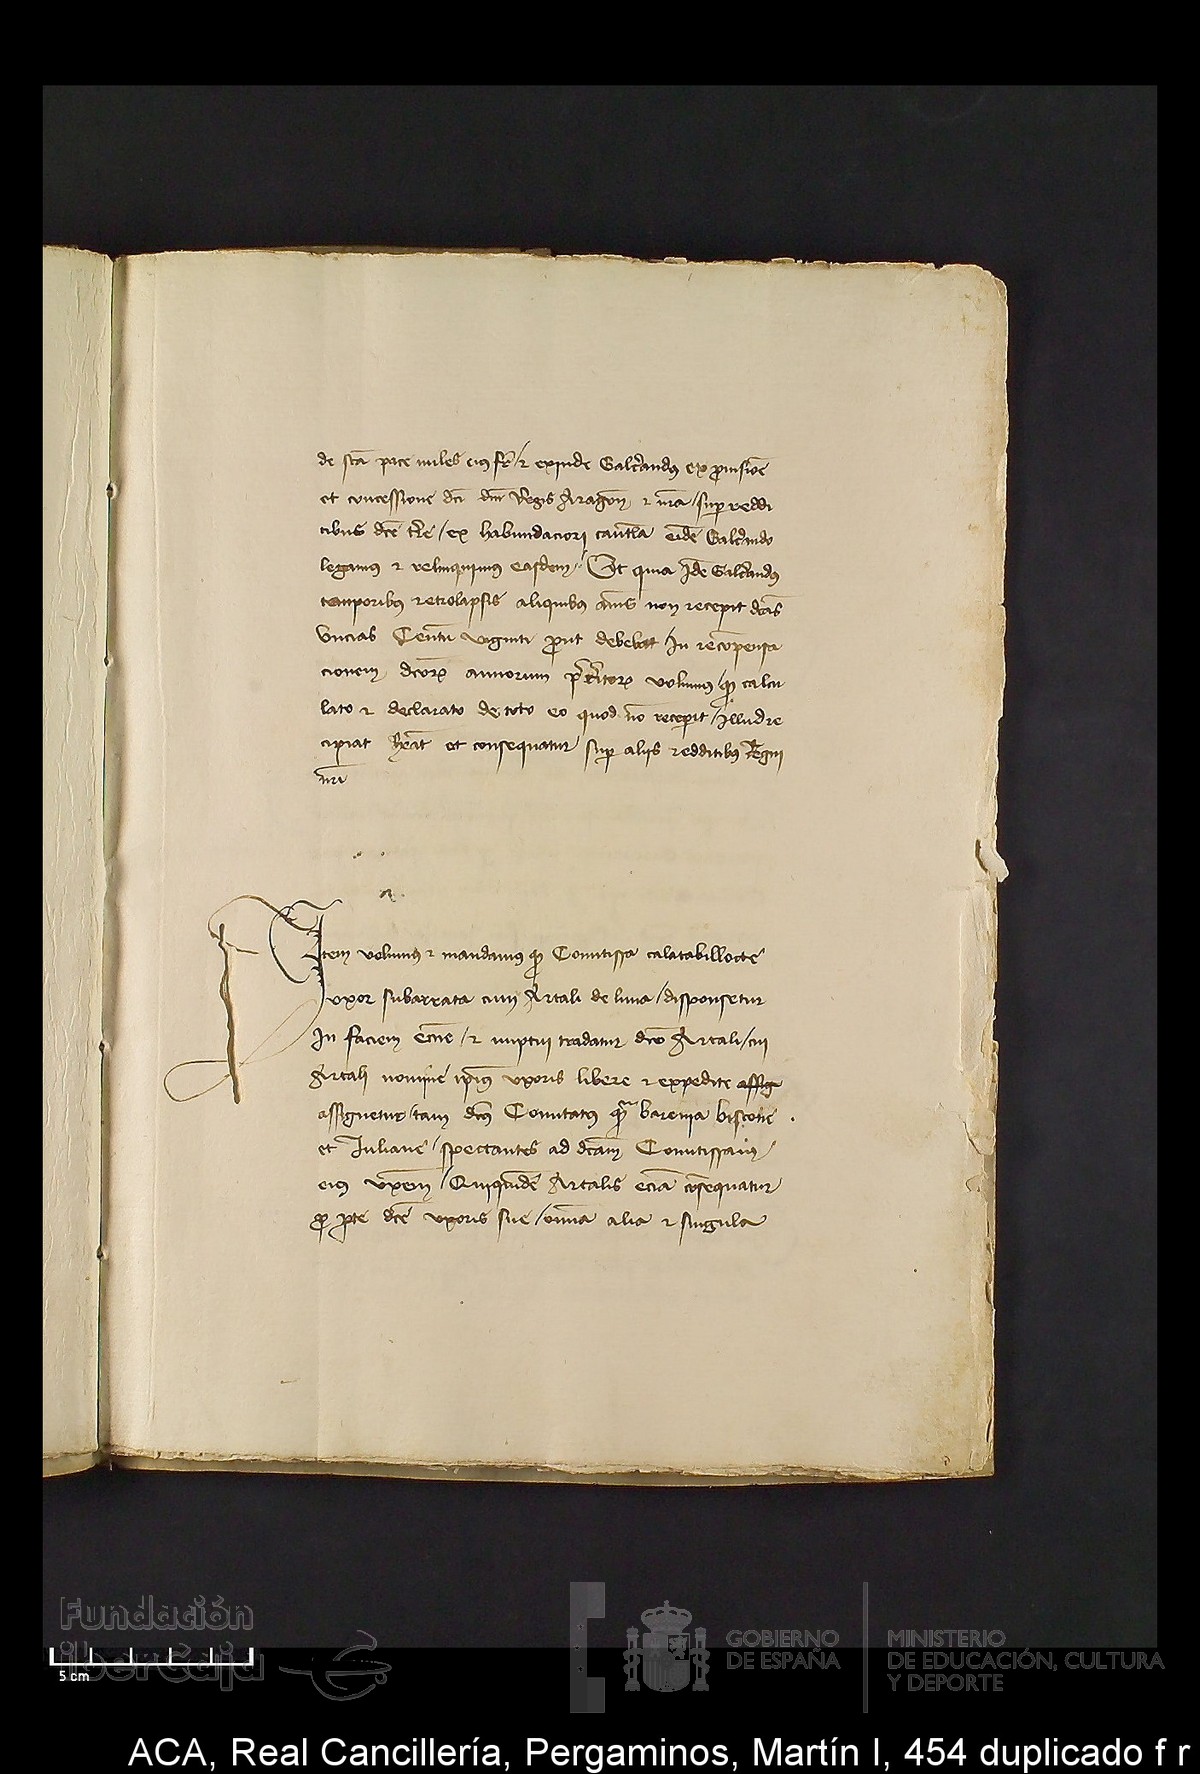 de sca pace miles eius fr / ⁊ exinde Galcerandus ex provisioe
et concessione dci dni Regis Aragon ⁊ nra / super reddi
tibus dce tre / ex habundaciori cautla eidē Galcerando
legamus ⁊ relinquimus easdem / Et quia Idē Galcerandus
temporibus retrolapsis aliquibus annis non recepit dcas
Uncias Centu viginti prout debebat / In recōpensa
cionem dcorum annorum preteritorum volumus / quod calcu
lato ⁊ declarato de toto eo quod nō recepit / Illud re
cipiat heat et consequatur super alijs redditibus Regni
nri
Item volumus ⁊ mandamus quod Comitissa calatabillocte
uxor subarrata cum Artali de luna / disponsetur
In faciem ecclie / ⁊ nuptui tradatur dco Artali / cui
Artali nomine ipius uxoris libere ⁊ expedite assig
assignetur / tam dcus Comitatus quam baronia bisconie
et Juliane / spectantes ad dcam Comitissam /
eius uxorem / Quiquidē Artalis eciā cōsequatur
pro pte dce uxoris sue / omnia alia ⁊ singula
Fundación
iberCaja
5 cm
GOBIERNO
DE ESPAÑA
MINISTERIO
DE EDUCACIÓN, CULTURA
Y DEPORTE
ACA, Real Cancillería, Pergaminos, Martín I, 454 duplicado f r